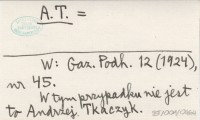 A.T. =
W: Gaz. Podh. 12 (1924),
nr 45.
W tym przypadku nie jest
to Andrzej Tkaczyk.